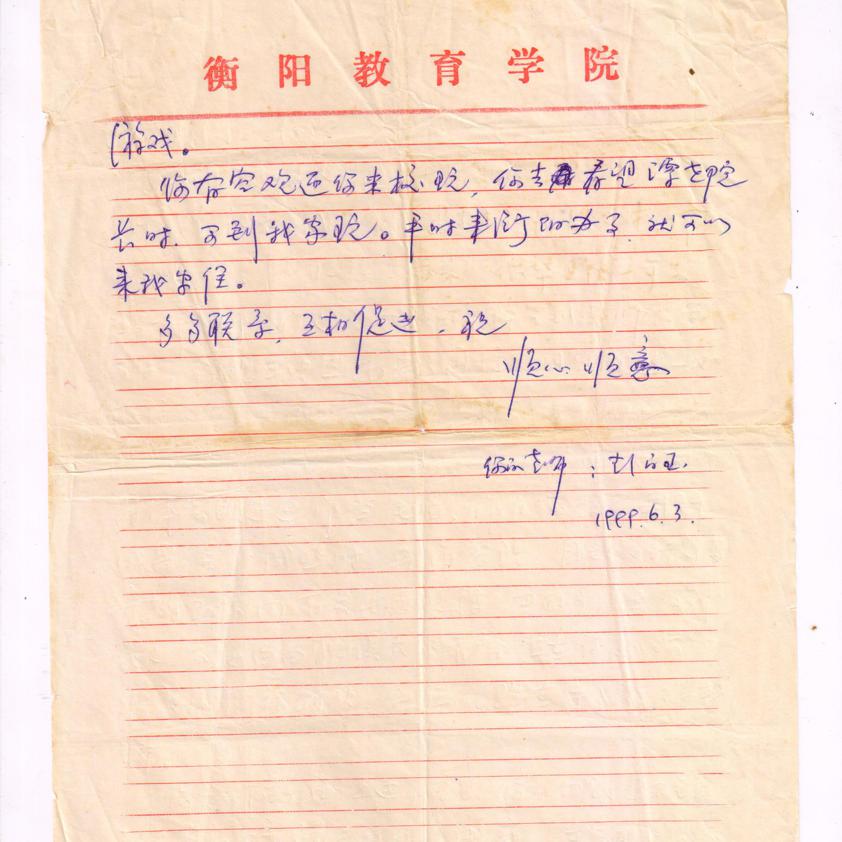 衡阳教育学院
游戏。
你有空欢迎你来校玩,你去希望谭老院
长时,可到我家玩。平时来衡阳办事,就可以
来我家住。
多多联系,互相促进,祝
顺心顺意
你的老师:
1999.6.3.